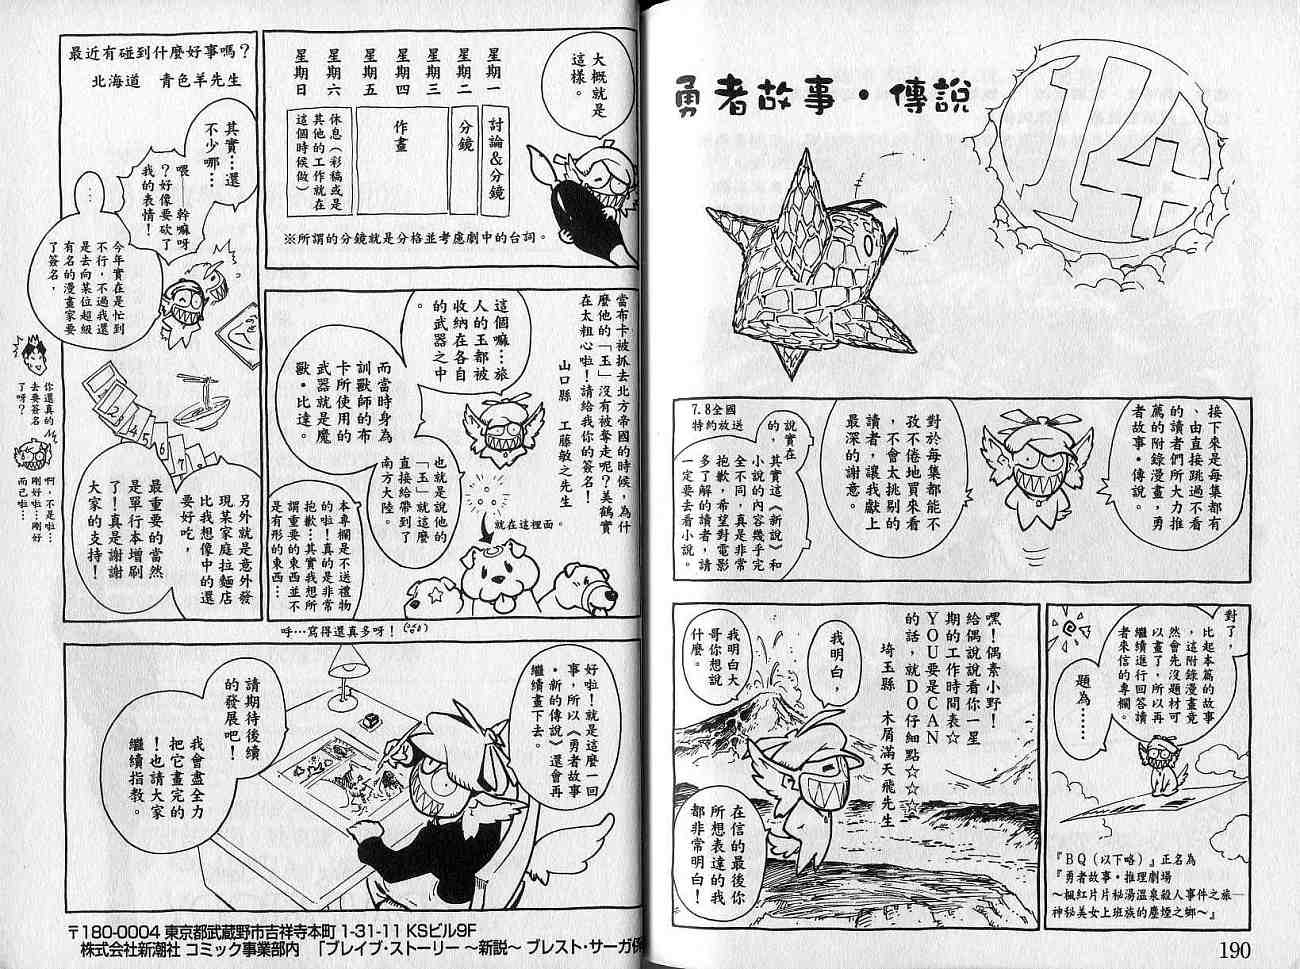 勇者故事・傳說
14
接下來是每集都有
、由直接跳過不看
的讀者們所大力推
薦的附錄漫畫，勇
者故事・傳說。
對於每集都能不
孜不倦地買來看
，不會太挑剔的
讀者，讓我獻上
最深的謝意。
7.8全國
特約放送
說實在
的，其實這《新說》和
小說的內容幾乎完
全不同，真是非常
抱歉，希望對電影
多了解的讀者，請
一定要去看小說。
對了，
比起本篇的故事
，這附錄漫畫竟
然會先沒題材可
以畫了，所以再
繼續進行回答讀
者來信的專欄。
題為……
『BQ（以下略）』正名為
『勇者故事・推理劇場
～楓紅片片祕湯溫泉殺人事件之旅—
神祕美女上班族的塵煙之鄉～』
嘿！偶素小野！
給偶說說看你一星
期的工作時間表☆
YOU要是CAN
的話，就DO仔細點☆☆☆
埼玉縣　木屑滿天飛先生
我明白，
我明白大
哥你想說
什麼。
在信的最後你
所想表達的我
都非常明白！
190
大概就是
這樣。
星期一
星期二
星期三
星期四
星期五
星期六
星期日
討論&分鏡
分鏡
作畫
休息（彩稿或是
其他的工作就在
這個時候做）
※所謂的分鏡就是分格並考慮劇中的台詞。
當布卡被抓去北方帝國的時候，為什
麼他的「玉」沒有被奪走呢？美鶴實
在太粗心啦！請給我你的簽名！
山口縣　工藤敏之先生
這個嘛…旅
人的玉都被
收納在各自
的武器之中
。
而當時身為
訓獸師的布
卡所使用的
武器就是魔
獸・比達。
也就是說他的
「玉」就這麼
直接給帶到了
南方大陸。
就在這裡面。
本專欄是不送禮物
的啦！真的是非常
抱歉…其實我想所
謂重要的東西並不
是有形的東西…
最近有碰到什麼好事嗎？
北海道　青色羊先生
其實…還
不少哪…
喂——幹嘛呀
？好像要砍了
我的表情！
…
今年實在是忙到
不行，不過我還
是去向某位超級
有名的漫畫家要
了簽名，
你還真的
去要簽名
了呀？
啊，不是啦…
剛好啦！剛好
而已啦…
另外就是意外發
現某家庭拉麵店
比我想像中的還
要好吃，
最重要的當然
是單行本增刷
了！真是謝謝
大家的支持！
呼…寫得還真多呀！
好啦！就是這麼一回
事，所以《勇者故事
・新的傳說》還會再
繼續畫下去。
請期待後續
的發展吧！
我會盡全力
把它畫完的
！也請大家
繼續指教。
〒180-0004 東京都武蔵野市吉祥寺本町 1-31-11 KSビル9F
株式会社新潮社 コミック事業部内　「ブレイブ・ストーリー ～新説～ ブレスト・サーガ係